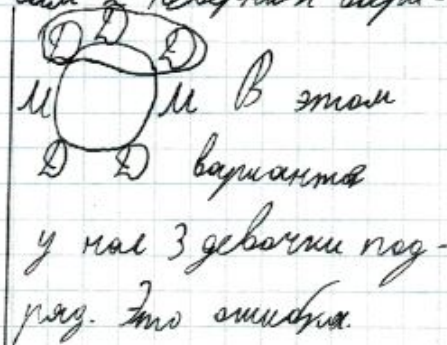 Д Д Д
М М В этом
Д Д варианте
у нас 3 девочки под-
ряд. Это ошибка.